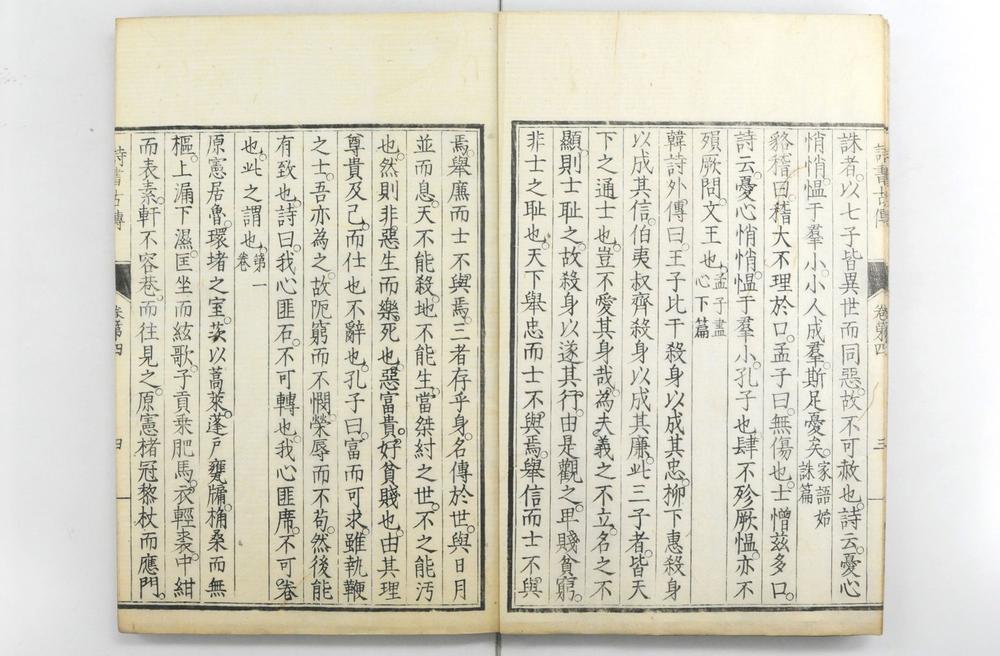 誅者。以七子皆異世而同惡。故不可赦也。詩云。憂心
悄悄。慍于羣小。小人成羣。斯足憂矣。家語始誅篇
貉稽曰。稽大不理於口。孟子曰。無傷也。士憎茲多口。
詩云。憂心悄悄。慍于羣小。孔子也。肆不殄厥慍。亦不
殞厥問。文王也。孟子盡心下篇
韓詩外傳曰。王子比干殺身以成其忠。柳下惠殺身
以成其信。伯夷叔齊殺身以成其廉。此三子者。皆天
下之通士也。豈不愛其身哉。為夫義之不立。名之不
顯。則士耻之。故殺身以遂其行。由是觀之。卑賤貧窮。
非士之耻也。天下舉忠而士不與焉。舉信而士不與
焉。舉廉而士不與焉。三者存乎身。名傳於世。與日月
並而息。天不能殺。地不能生。當桀紂之世。不之能汚
也。然則非惡生而樂死也。惡富貴。好貧賤也。由其理
尊貴及己。而仕也不辭也。孔子曰。富而可求。雖執鞭
之士。吾亦為之。故阨窮而不憫。榮辱而不苟。然後能
有致也。詩曰。我心匪石。不可轉也。我心匪席。不可卷
也。此之謂也。第一卷
原憲居魯。環堵之室。茨以蒿萊。蓬戶甕牖。桷桑而無
樞。上漏下濕。匡坐而絃歌。子貢乘肥馬。衣輕裘。中紺
而表素。軒不容巷。而往見之。原憲楮冠黎杖而應門。
詩書古傳
卷第四
三
詩書古傳
卷第四
四